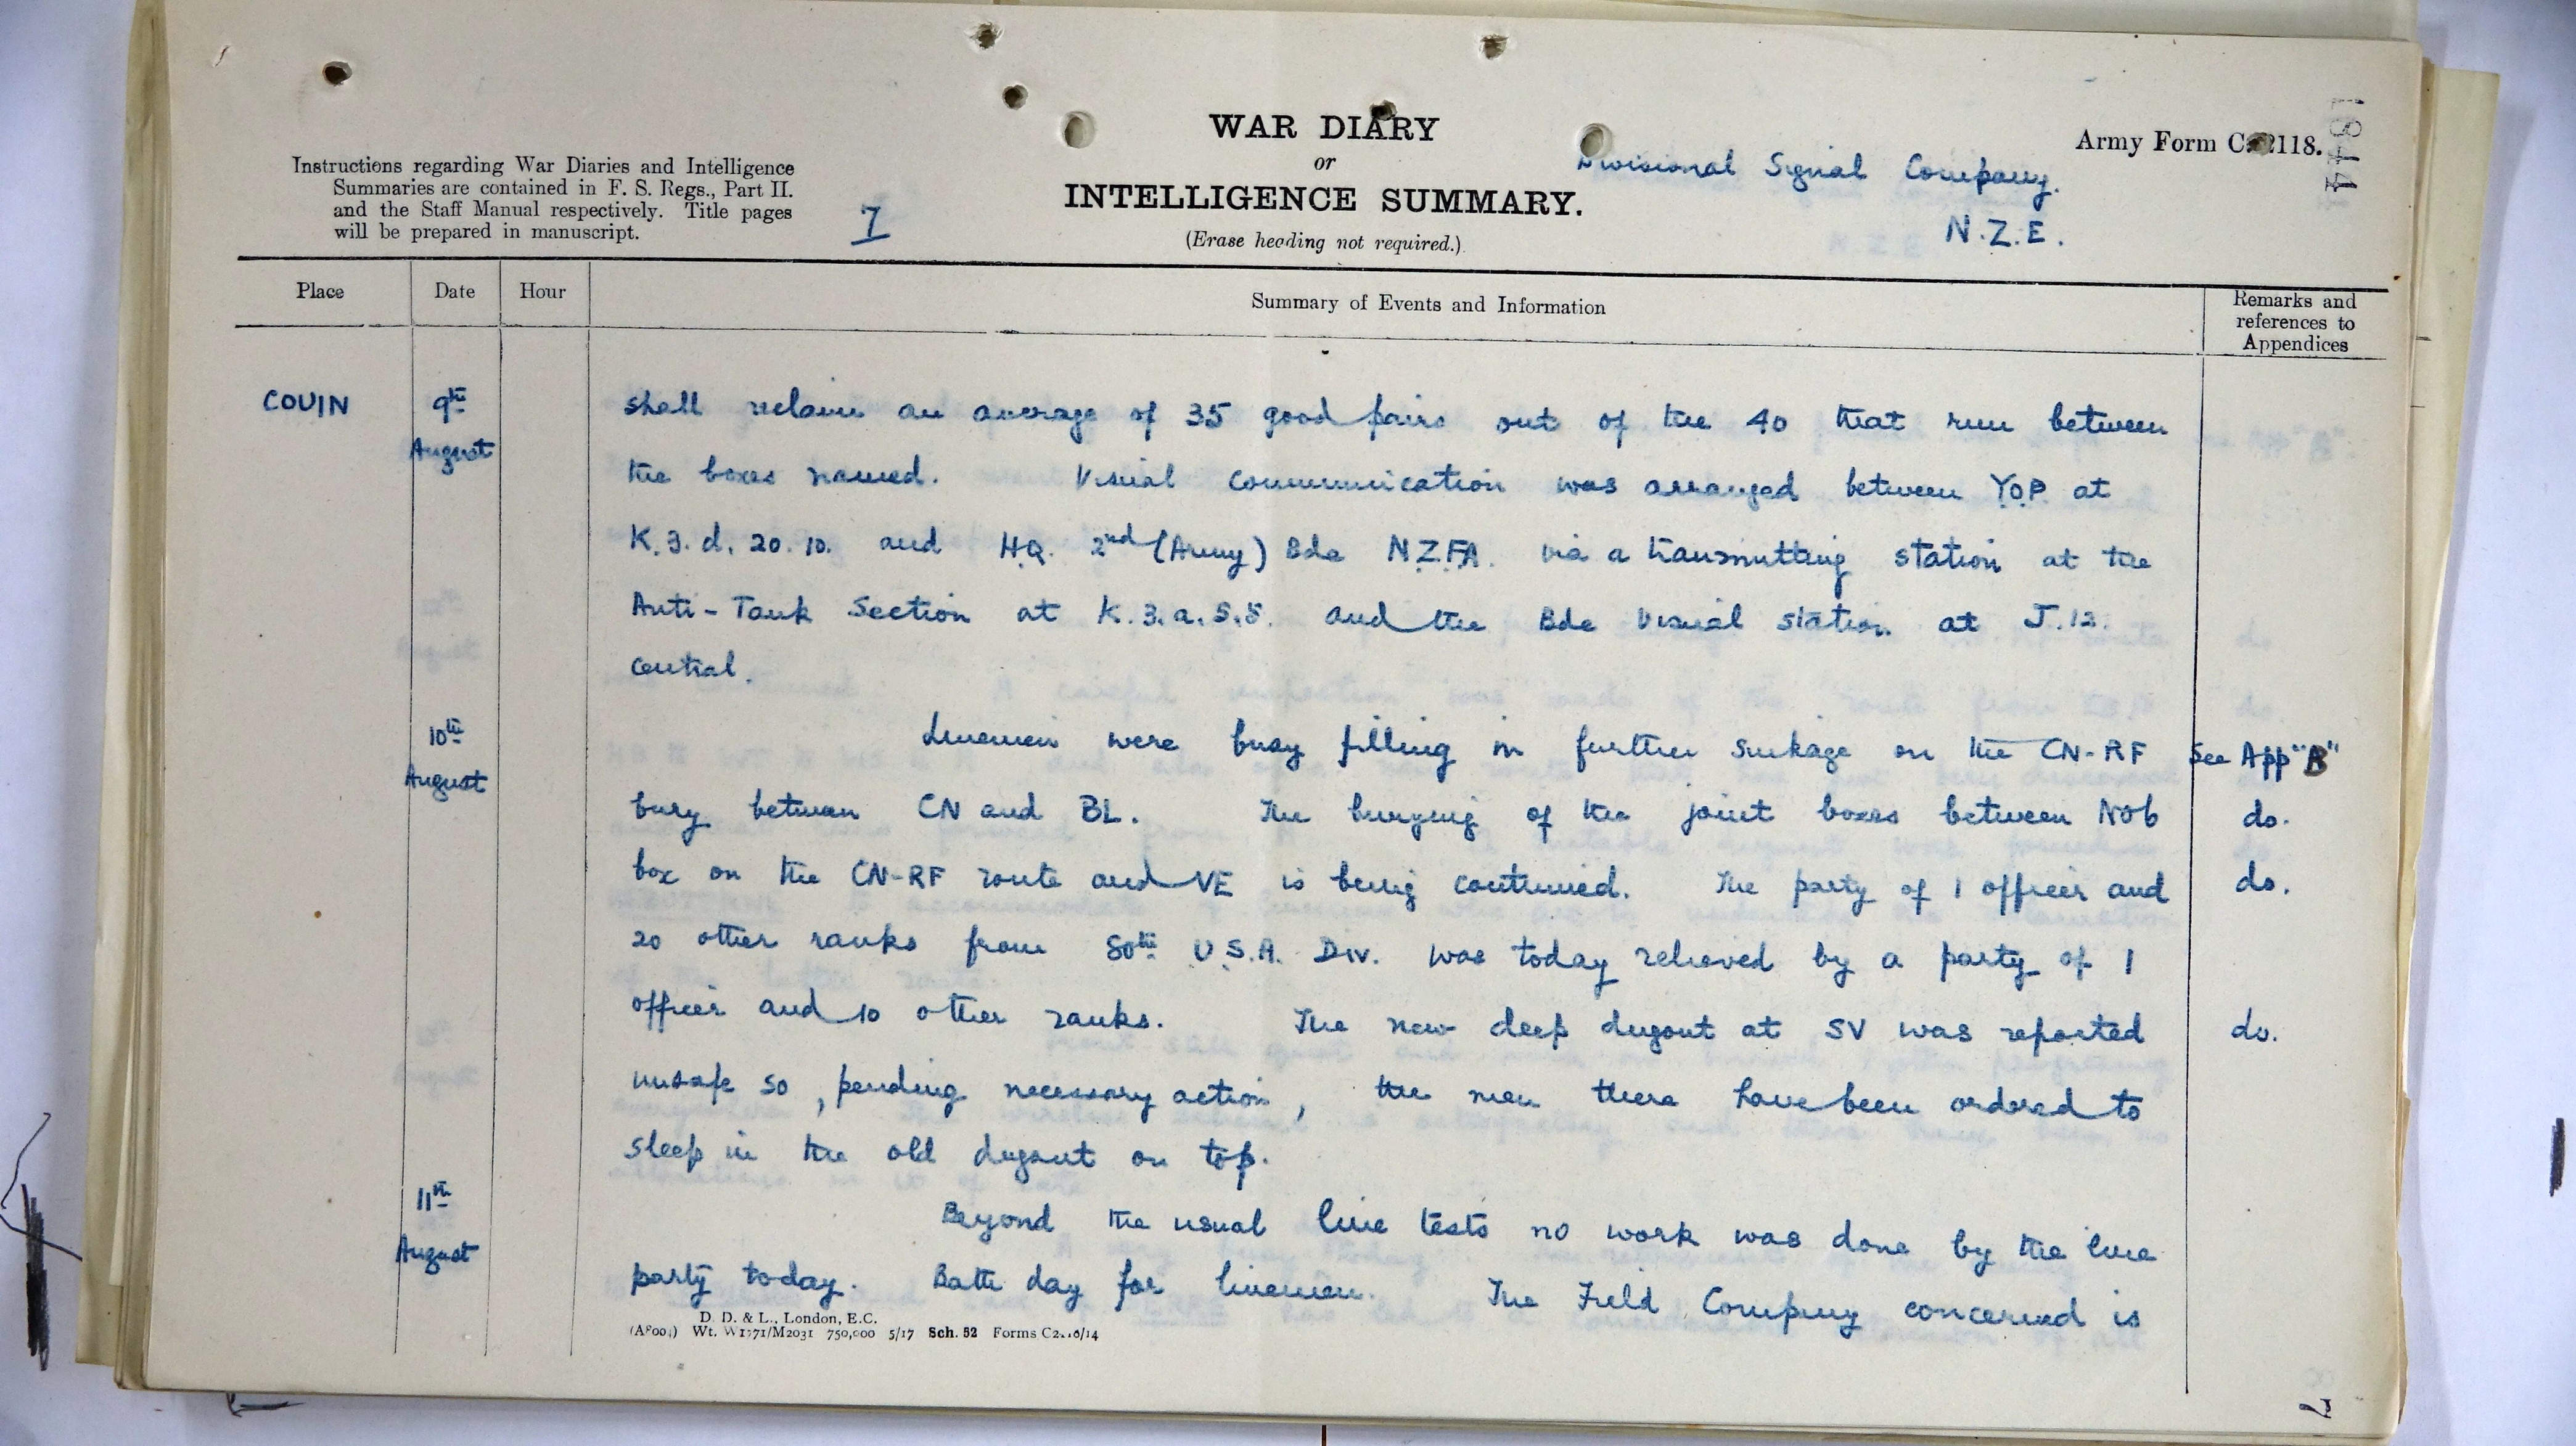 WAR DIARY
or
INTELLIGENCE SUMMARY.
(Erase heading not required.)
Army Form C. 2118.
Instructions regarding War Diaries and Intelligence
Summaries are contained in F. S. Regs., Part II.
and the Staff Manual respectively. Title pages
will be prepared in manuscript.
Divisional Signal Company.
N.Z.E.
Place Date Hour Summary of Events and Information Remarks and references to Appendices
COUIN 9th August shall retain an average of 35 good pairs out of the 40 that run between
the boxes named. Visual communication was arranged between YOP at
K.3.d.20.10. and HQ. 2nd (Army) Bde N.Z.F.A. via a transmitting station at the
Anti-Tank Section at K.3.a.5.5. and the Bde Visual station at J.12.
central.
10th August Linemen were busy filling in further sinkage on the CN-RF See App "B"
bury between CN and BL. The burying of the joint boxes between NOb do.
box on the CN-RF route and VE is being continued. The party of 1 officer and do.
20 other ranks from 80th U.S.A. Div. was today relieved by a party of 1
officer and 10 other ranks. The new deep dugout at SV was reported do.
unsafe so, pending necessary action, the men there have been ordered to
sleep in the old dugout on top.
11th August Beyond the usual line tests no work was done by the line
party today. Bath day for linemen. The Field Company concerned is
D. D. & L., London, E.C.
Wt. W1771/M2031 750,000 5/17 Sch. 52 Forms C2118/14
7